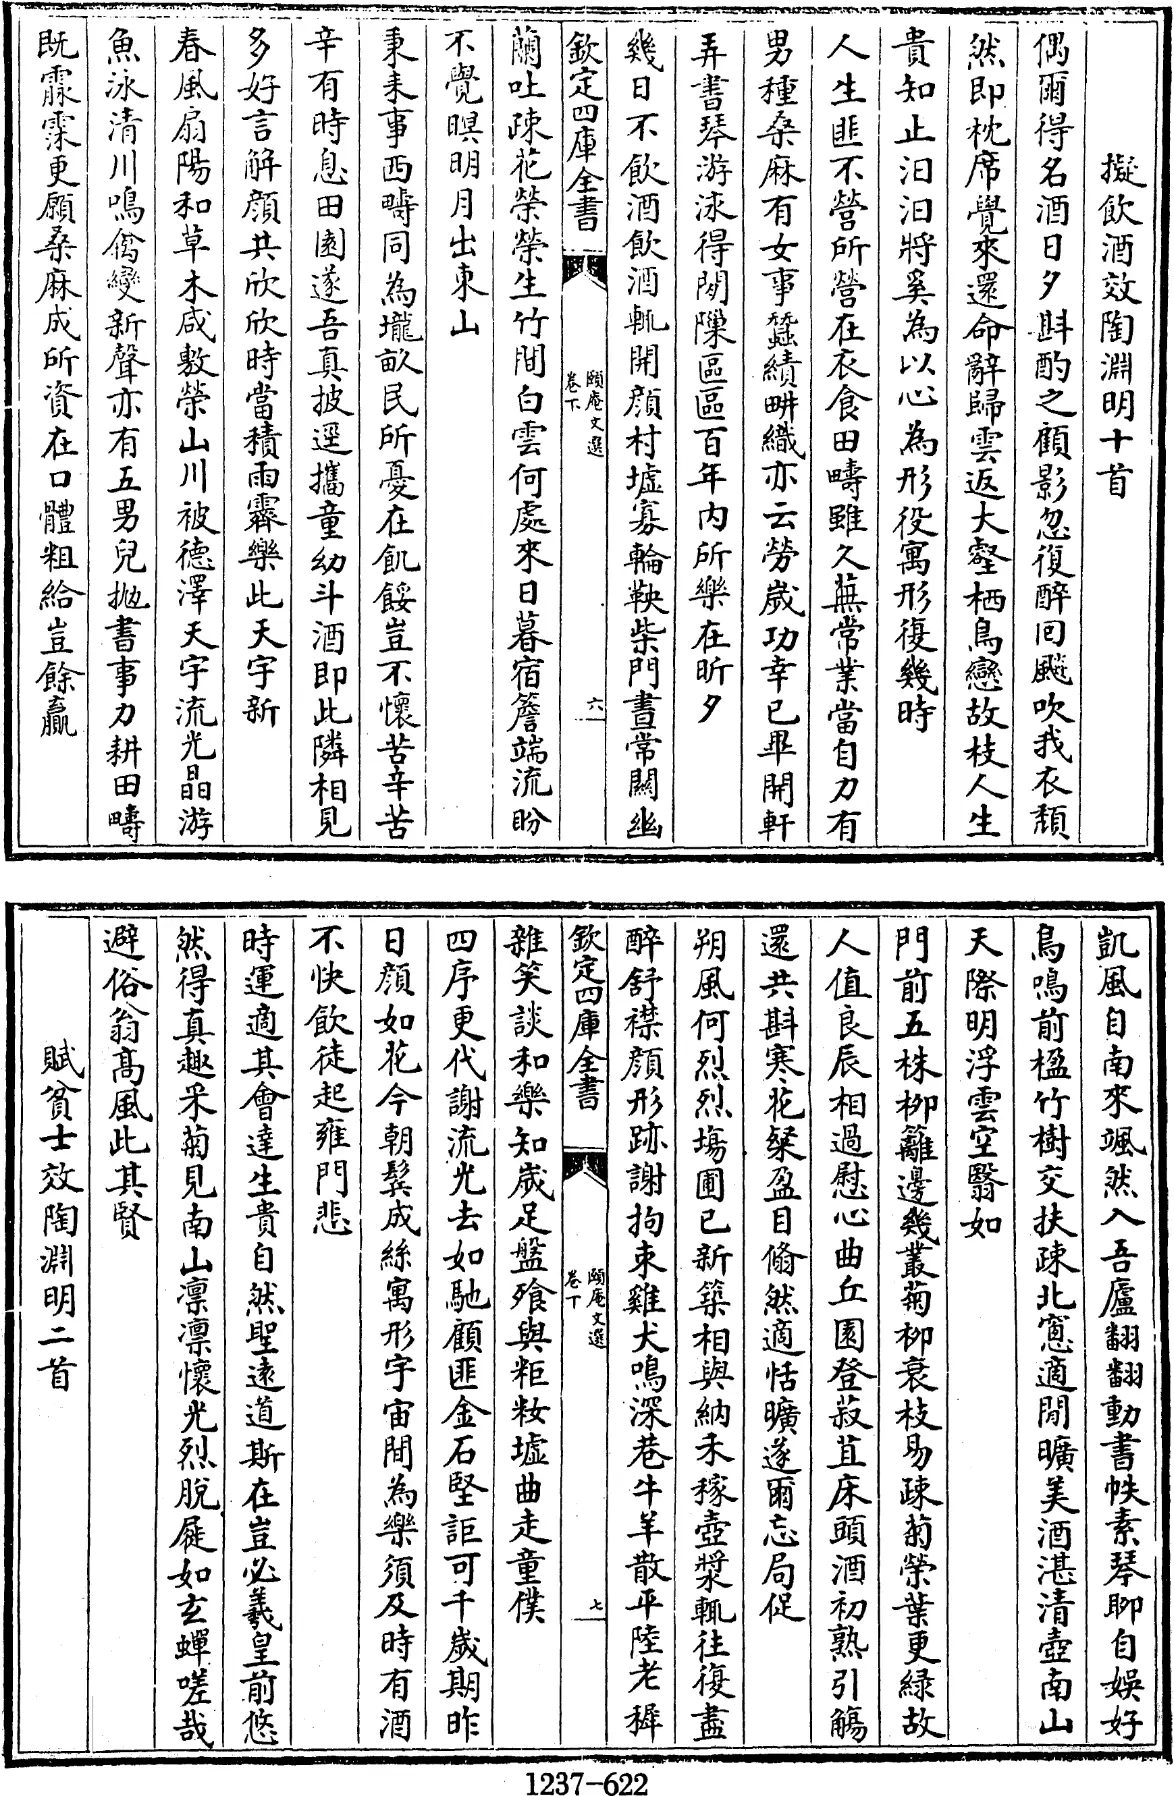 擬飲酒效陶淵明十首
偶爾得名酒日夕斟酌之顧影忽復醉回飈吹我衣頽
然即枕席覺來還命辭歸雲返大壑栖鳥戀故枝人生
貴知止汩汩將奚為以心為形役寓形復幾時
人生匪不營所營在衣食田疇雖久蕪常業當自力有
男種桑麻有女事蠶績畊織亦云勞歲功幸已畢開軒
弄書琴游泳得閒隟區區百年内所樂在昕夕
幾日不飲酒飲酒輒開顔村墟寡輪鞅柴門晝常關幽
欽定四庫全書
頤庵文選
卷下
六
蘭吐疎花榮榮生竹間白雲何處來日暮宿簷端流盼
不覺暝明月出東山
秉耒事西疇同為壠畝民所憂在飢餒豈不懷苦辛苦
辛有時息田園遂吾真披逕攜童幼斗酒即此隣相見
多好言解顔共欣欣時當積雨霽樂此天宇新
春風扇陽和草木咸敷榮山川被德澤天宇流光晶游
魚泳清川鳴禽變新聲亦有五男兒抛書事力耕田疇
既霡霂更願桑麻成所資在口體粗給豈餘贏
凱風自南來颯然入吾廬翻翻動書帙素琴聊自娛好
鳥鳴前楹竹樹交扶疎北窻適閒曠美酒湛清壺南山
天際明浮雲空翳如
門前五株柳籬邊幾叢菊柳衰枝易疎菊榮葉更緑故
人值良辰相過慰心曲丘園登菽苴床頭酒初熟引觴
還共斟寒花粲盈目翛然適恬曠遂爾忘局促
朔風何烈烈塲圃已新築相與納禾稼壺漿輒往復盡
醉舒襟顔形跡謝拘束雞犬鳴深巷牛羊散平陸老穉
欽定四庫全書
頤庵文選
卷下
七
雜笑談和樂知歲足盤飱與粔籹墟曲走童僕
四序更代謝流光去如馳顧匪金石堅詎可千歲期昨
日顔如花今朝鬂成絲寓形宇宙間為樂須及時有酒
不快飲徒起雍門悲
時運適其會達生貴自然聖逺道斯在豈必羲皇前悠
然得真趣采菊見南山凛凛懷光烈脱屣如玄蟬嗟哉
避俗翁高風此其賢
賦貧士效陶淵明二首
1237-622